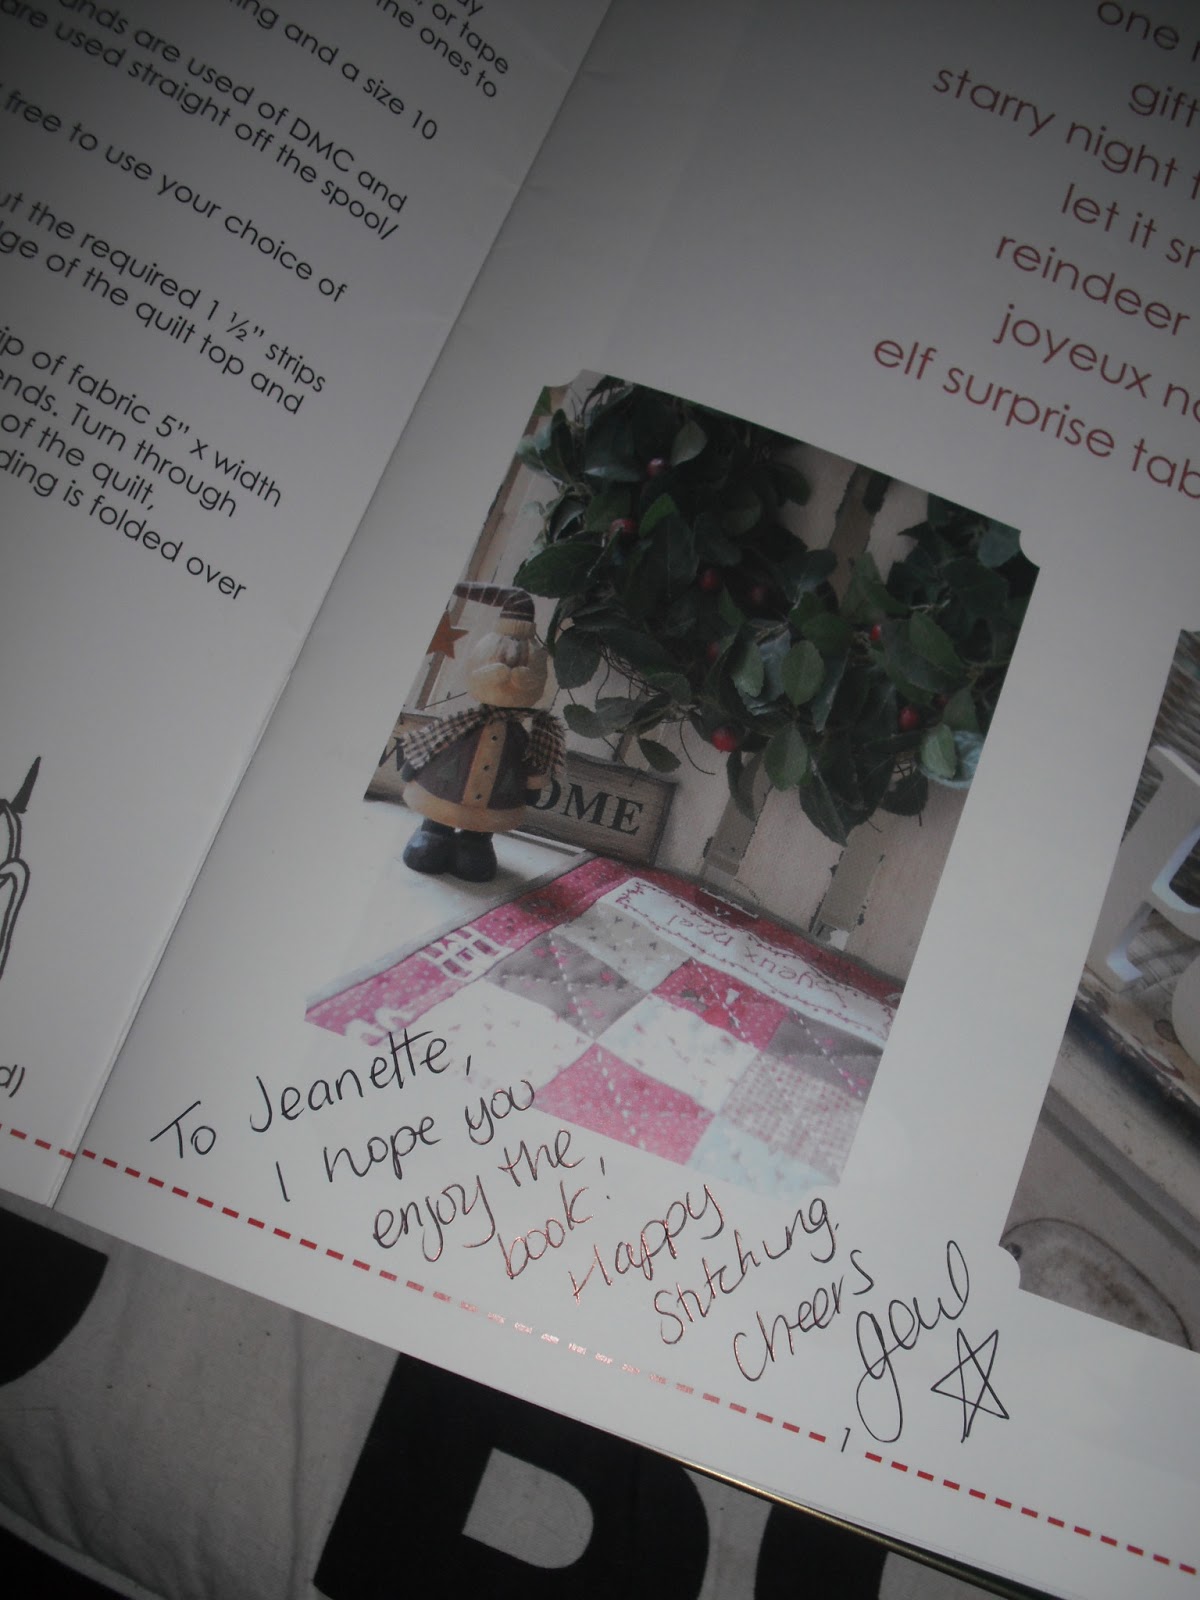 or tape
the ones to
and a size 10
are used of DMC and
are used straight off the spool/
free to use your choice of
the required 1 ½" strips
of the quilt top and
of fabric 5" x width
ends. Turn through
of the quilt,
is folded over
one
gift
starry night
let it
reindeer
joyeux
elf surprise
OME
joyeux noel
To Jeanette,
I hope you
enjoy the
book!
Happy
Stitching.
Cheers,
1